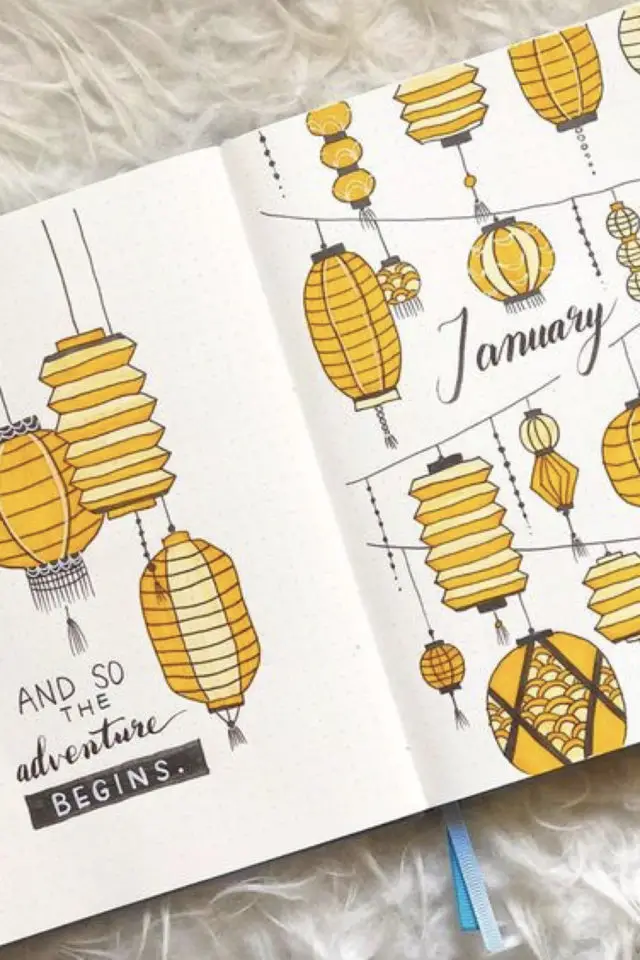 AND SO
THE
adventure
BEGINS.
January